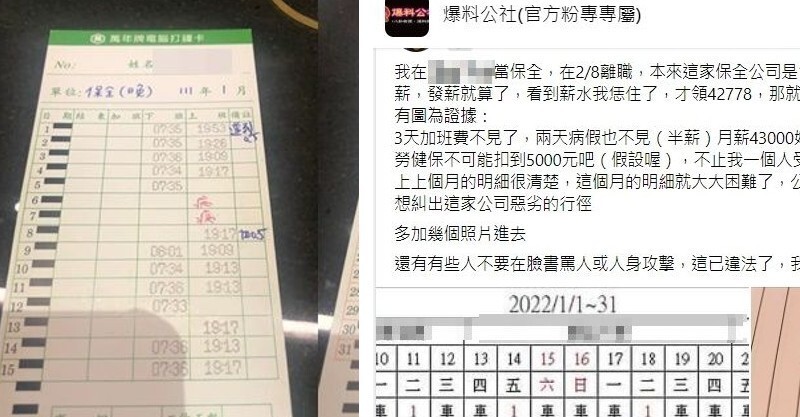 萬年牌電腦打鐘卡
No:
姓名
單位: 保全(晚) 111 年 1 月
日 期 結 束 加 班 下 班 上 班 備註
1 07:35 19:53 遲到
2 07:35 19:26
3 07:36 19:09
4 07:34 19:17
5 07:35
6 病
7 病
8 19:17
9 08:01 19:09
10 07:34 19:13
11 07:36 19:16
12 07:33
13 19:17
14 07:36 19:13
15 07:36 19:17
29
30
31
爆料公社(官方粉專專屬)
我在 當保全,在2/8離職,本來這家保全公司是
薪,發薪就算了,看到薪水我恁住了,才領42778,那就
有圖為證據:
3天加班費不見了,兩天病假也不見(半薪)月薪43000
勞健保不可能扣到5000元吧(假設喔),不止我一個人受
上上個月的明細很清楚,這個月的明細就大大困難了,公
想糾出這家公司惡劣的行徑
多加幾個照片進去
還有有些人不要在臉書罵人或人身攻擊,這已違法了,我
2022/1/1~31
10 11 12 13 14 15 16 17 18 19 20
一 二 三 四 五 六 日 一 二 三 四 五
車 1 車 車 1 車 車 1 車 車 1 車